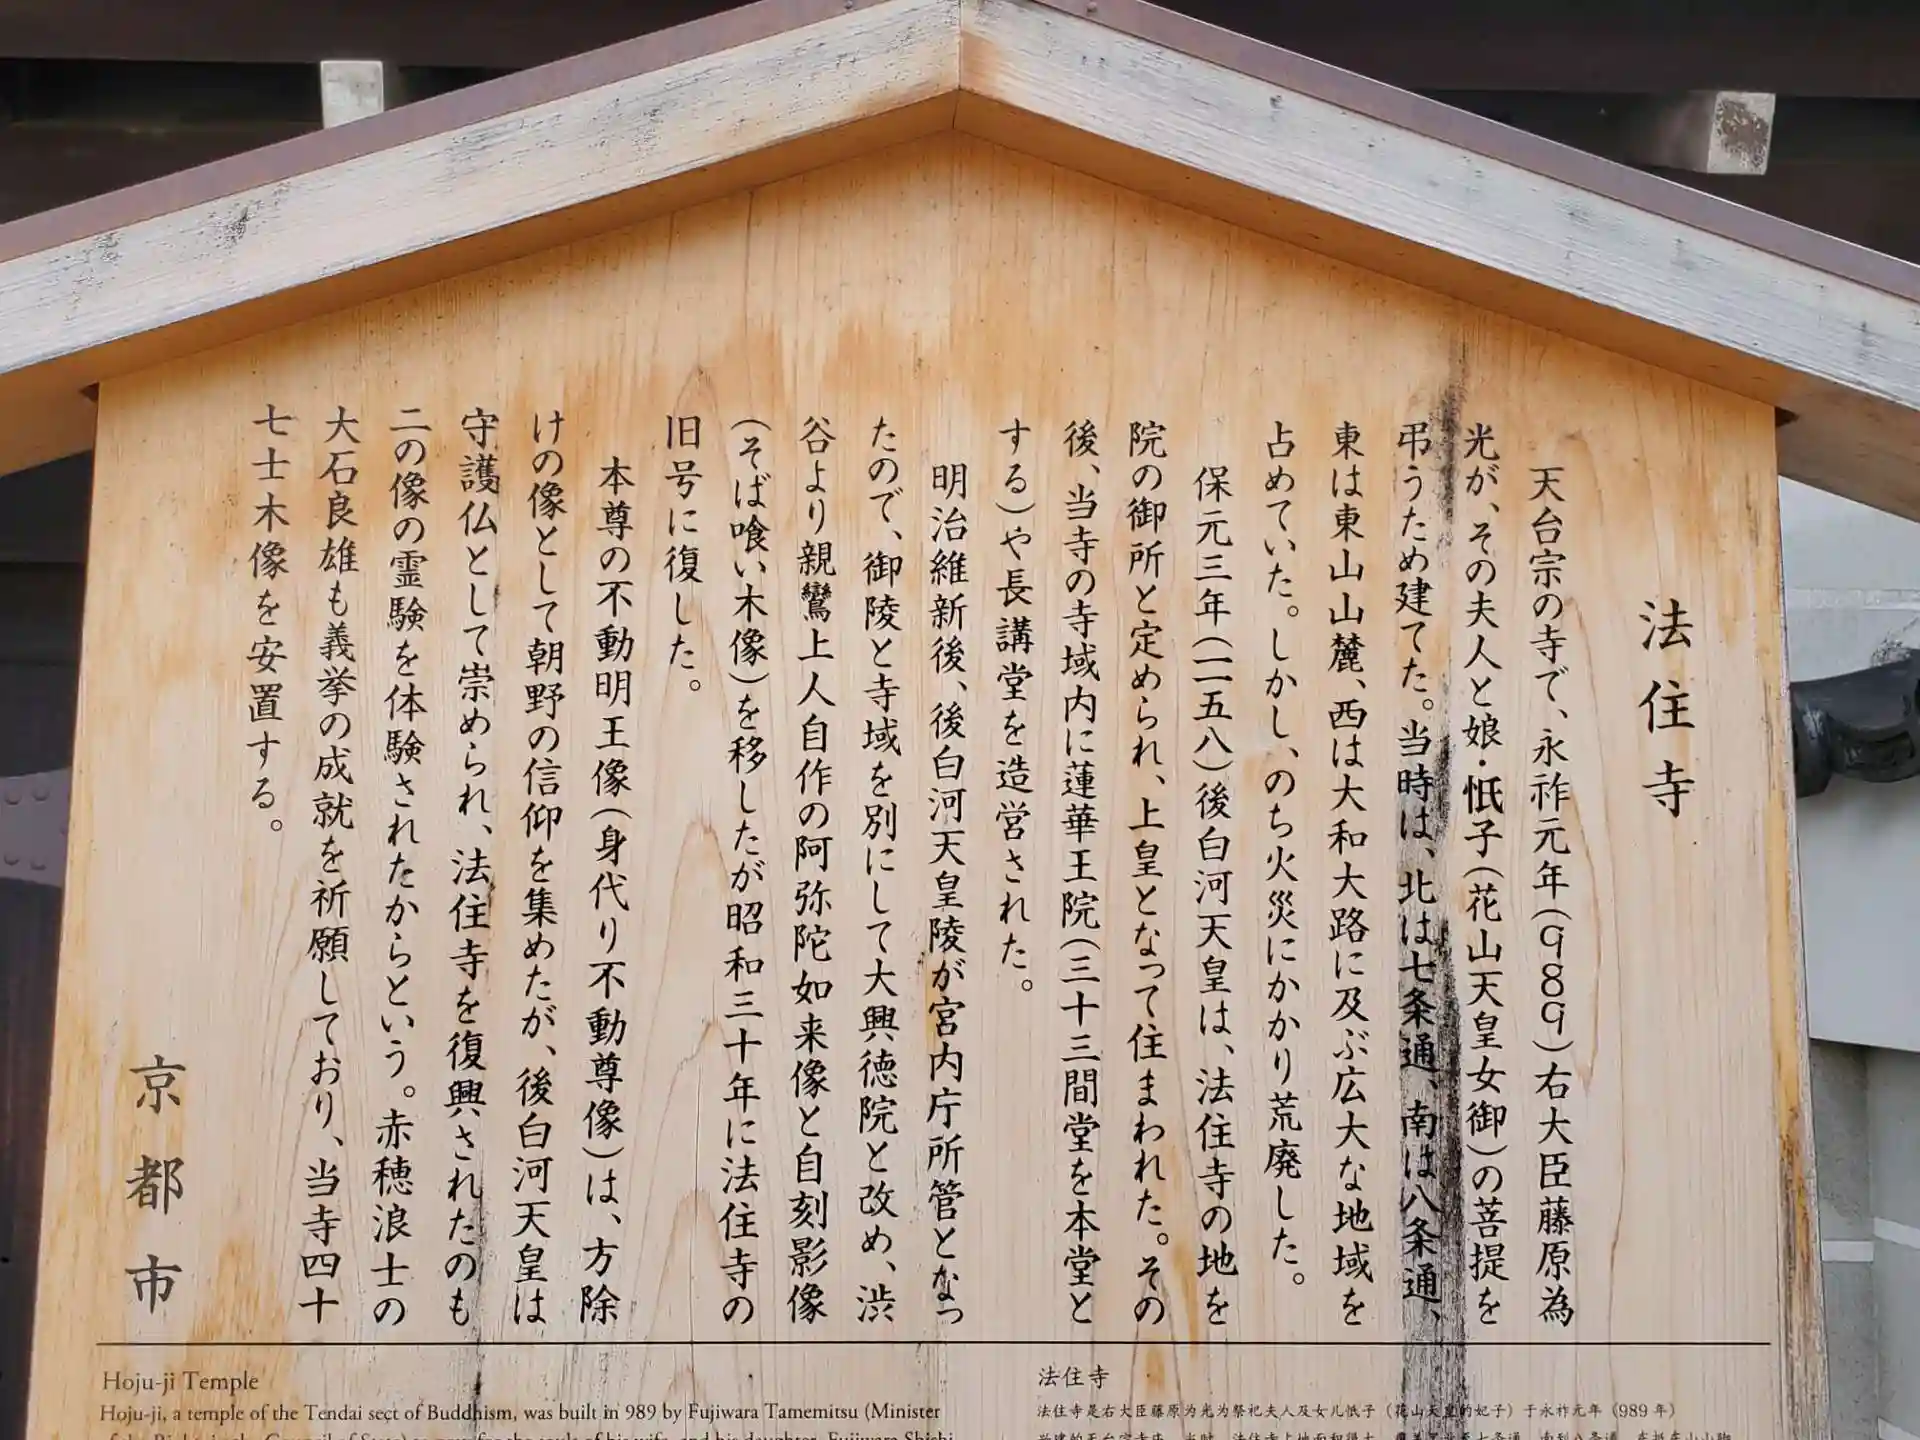 法住寺
天台宗の寺で、永祚元年(989)右大臣藤原為
光が、その夫人と娘・忯子(花山天皇女御)の菩提を
弔うため建てた。当時は、北は七条通、南は八条通、
東は東山山麓、西は大和大路に及ぶ広大な地域を
占めていた。しかし、のち火災にかかり荒廃した。
保元三年(一一五八)後白河天皇は、法住寺の地を
院の御所と定められ、上皇となって住まわれた。その
後、当寺の寺域内に蓮華王院(三十三間堂を本堂と
する)や長講堂を造営された。
明治維新後、後白河天皇陵が宮内庁所管となっ
たので、御陵と寺域を別にして大興徳院と改め、渋
谷より親鸞上人自作の阿弥陀如来像と自刻影像
(そば喰い木像)を移したが昭和三十年に法住寺の
旧号に復した。
本尊の不動明王像(身代り不動尊像)は、方除
けの像として朝野の信仰を集めたが、後白河天皇は
守護仏として崇められ、法住寺を復興されたのも
二の像の霊験を体験されたからという。赤穂浪士の
大石良雄も義挙の成就を祈願しており、当寺四十
七士木像を安置する。
京都市
Hoju-ji Temple
Hoju-ji, a temple of the Tendai sect of Buddhism, was built in 989 by Fujiwara Tamemitsu (Minister
法住寺
法住寺是右大臣藤原为光为祭祀夫人及女儿忯子（花山天皇的妃子）于永祚元年（989年）